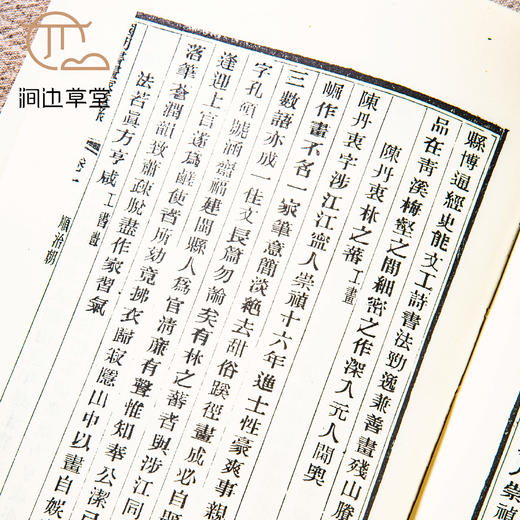 涧边草堂
縣博通經史能文工詩書法勁逸兼善畫殘山賸
品在青溪梅壑之間細密之作深入元人閫奧
陳丹衷林之蕃工畫
陳丹衷字涉江江盜人崇禎十六年進士性豪爽事親
崛作畫不名一家筆意簡淡絶去甜俗蹊徑畫成必自題
三數語亦成一佳文長篇勿論矣有林之蕃者與涉江同
字孔碩號涵齋福建閩縣人為官清廉有聲惟知奉公潔己
逢迎上官遂為鹾使者所劾竟拂衣歸寂隱山中以畫自娛
落筆蒼潤韻致蕭疎脫盡作家習氣
法若真方亨咸工書畫
卷一
順治朝
人崇禎